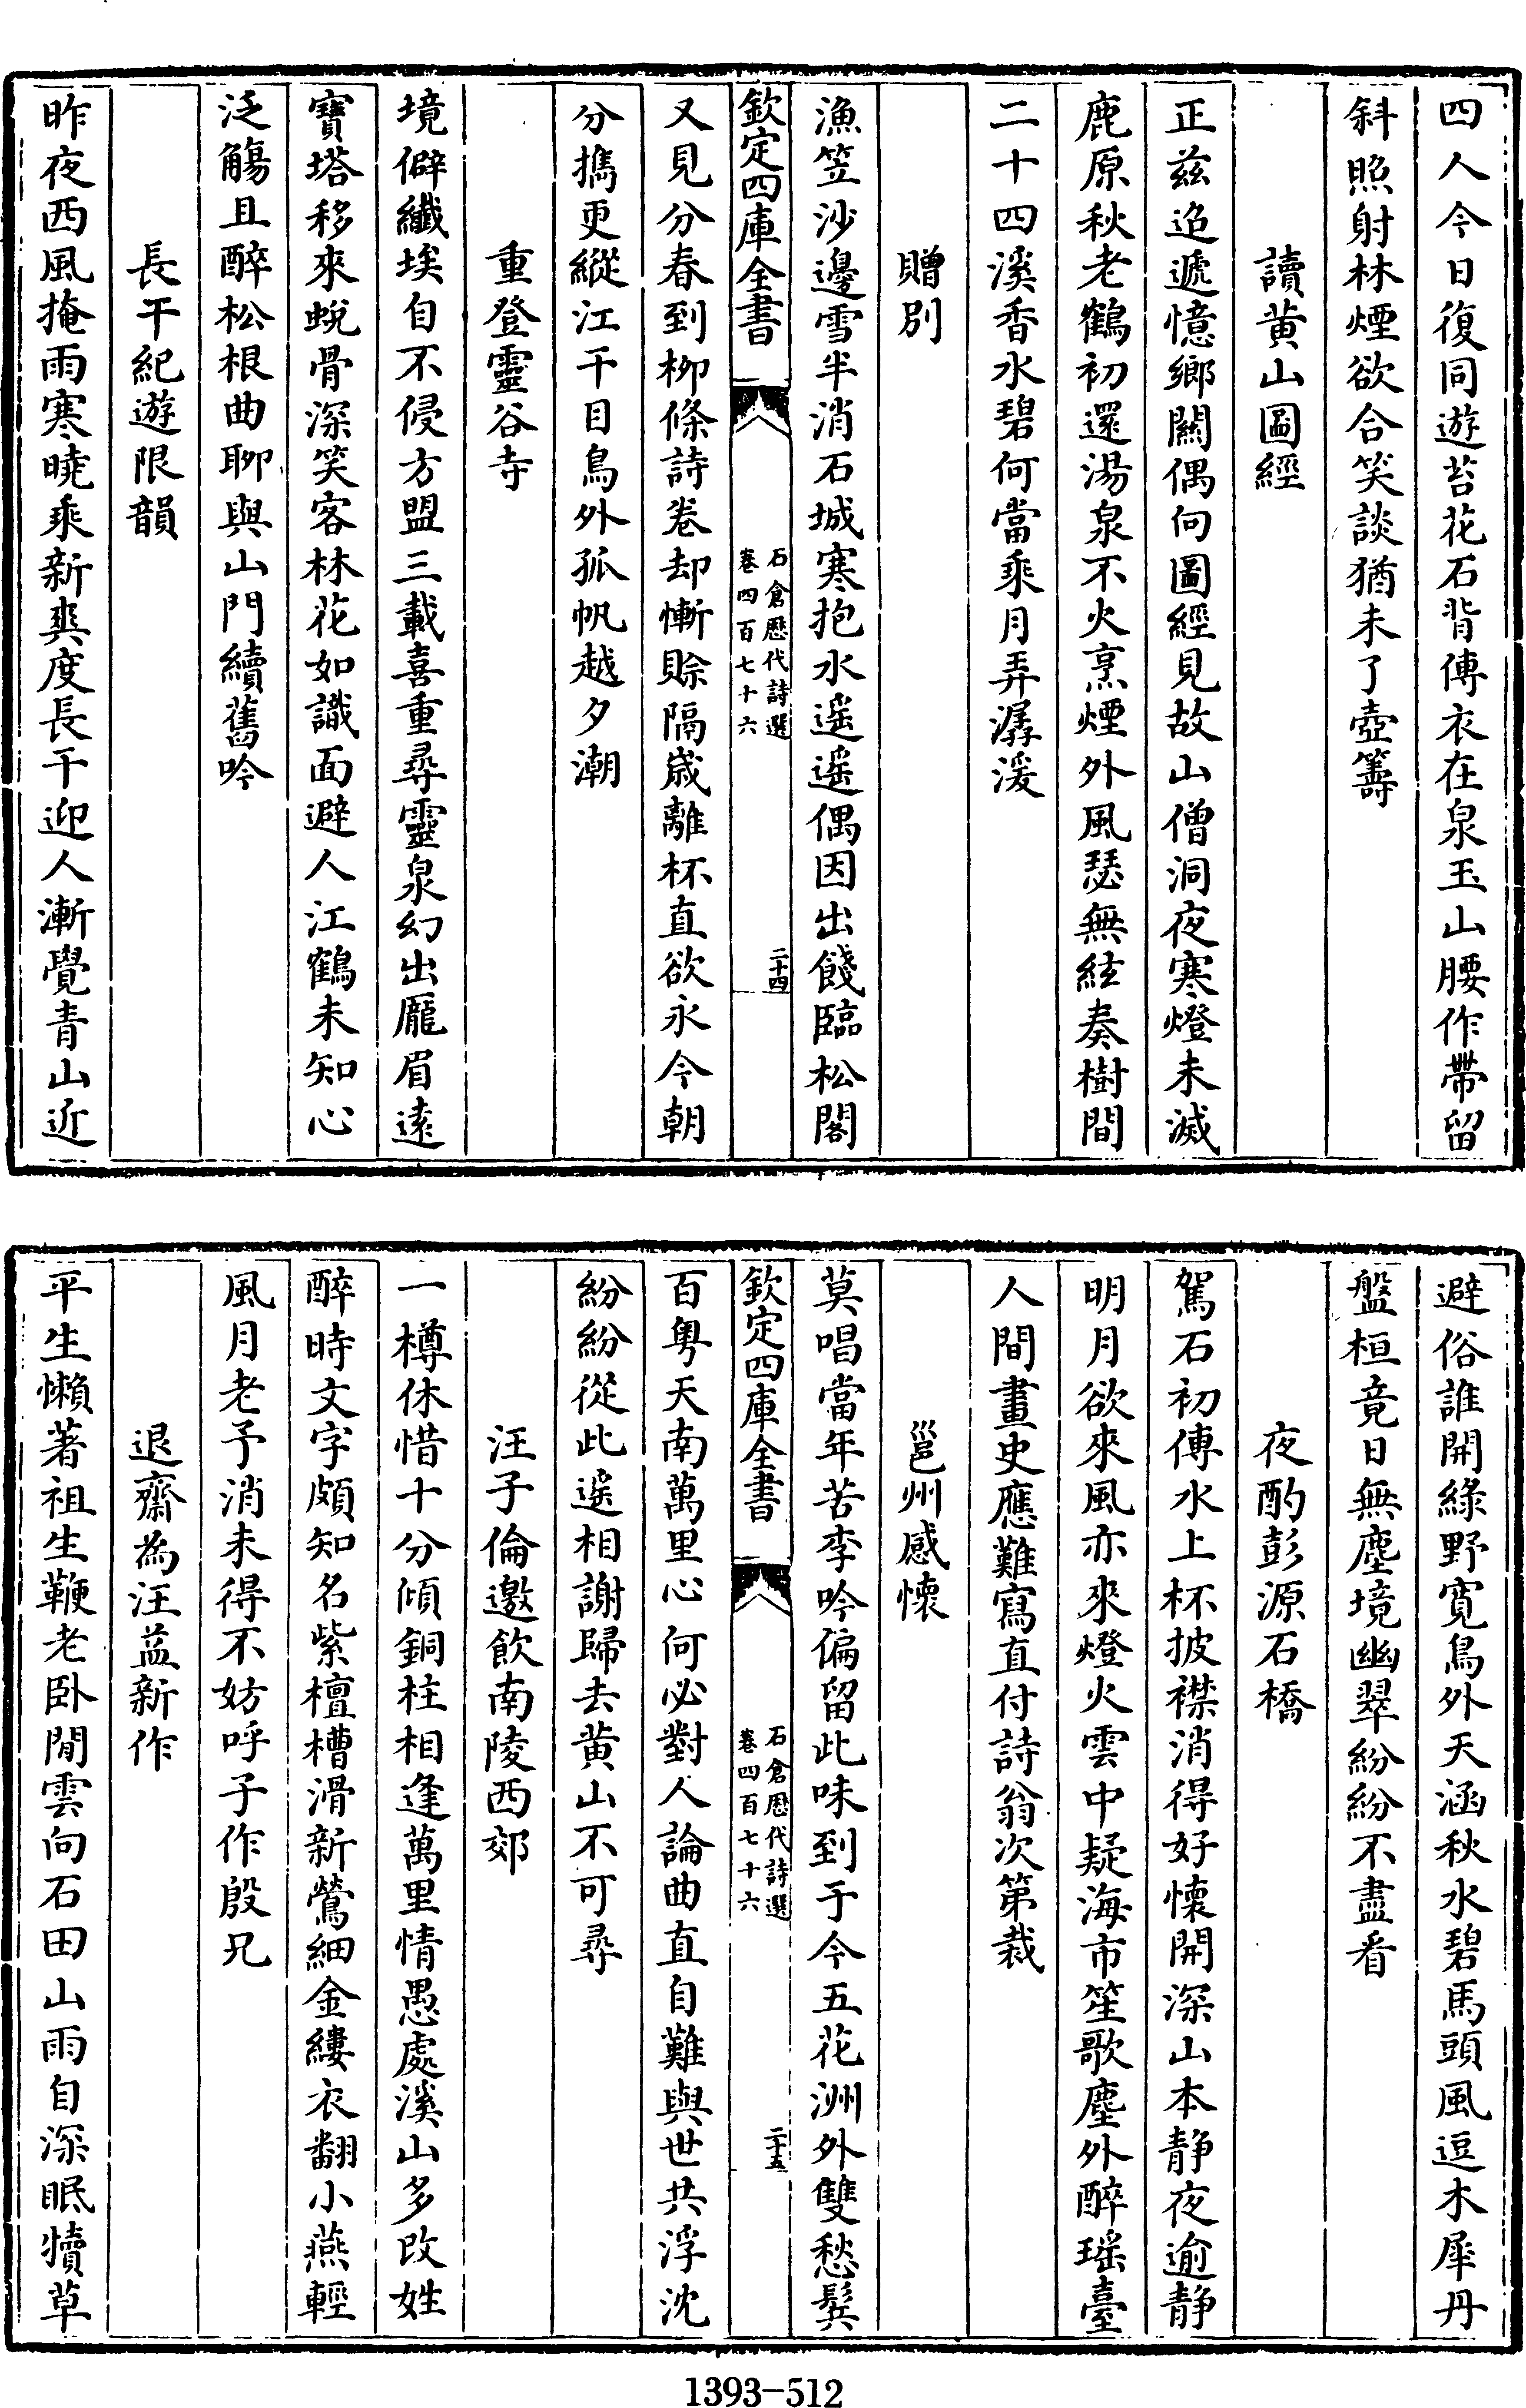 四人今日復同遊苔花石背傳衣在泉玉山腰作帶留
斜照射林煙欲合笑談猶未了壺籌
讀黄山圖經
正兹迢遞憶鄉關偶向圖經見故山僧洞夜寒燈未滅
鹿原秋老鶴初還湯泉不火烹煙外風瑟無絃奏樹間
二十四溪香水碧何當乘月弄潺湲
贈別
漁笠沙邊雪半消石城寒抱水遥遥偶因出餞臨松閣
欽定四庫全書
石倉歷代詩選
卷四百七十六
二十四
又見分春到柳條詩卷却慚賒隔歲離杯直欲永今朝
分攜更縱江干目鳥外孤帆越夕潮
重登靈谷寺
境僻纖埃自不侵方盟三載喜重尋靈泉幻出龎眉遠
寶塔移來蛻骨深笑客林花如識面避人江鶴未知心
泛觴且醉松根曲聊與山門續舊吟
長干紀遊限韻
昨夜西風掩雨寒曉乘新爽度長干迎人漸覺青山近
避俗誰開綠野寛鳥外天涵秋水碧馬頭風逗木犀丹
盤桓竟日無塵境幽翠紛紛不盡看
夜酌彭源石橋
駕石初傳水上杯披襟消得好懷開深山本静夜逾静
明月欲來風亦來燈火雲中疑海市笙歌塵外醉瑶臺
人間畫史應難寫直付詩翁次第裁
邕州感懷
莫唱當年苦李吟偏留此味到于今五花洲外雙愁鬓
欽定四庫全書
石倉歷代詩選
卷四百七十六
二十五
百粤天南萬里心何必對人論曲直自難與世共浮沈
紛紛從此遥相謝歸去黄山不可尋
汪子倫邀飲南陵西郊
一樽休惜十分傾銅柱相逢萬里情愚處溪山多改姓
醉時文字頗知名紫檀槽滑新鶯細金縷衣翻小燕輕
風月老予消未得不妨呼子作殷兄
退齋為汪益新作
平生懶著祖生鞭老卧閒雲向石田山雨自深眠犢草
1393-512